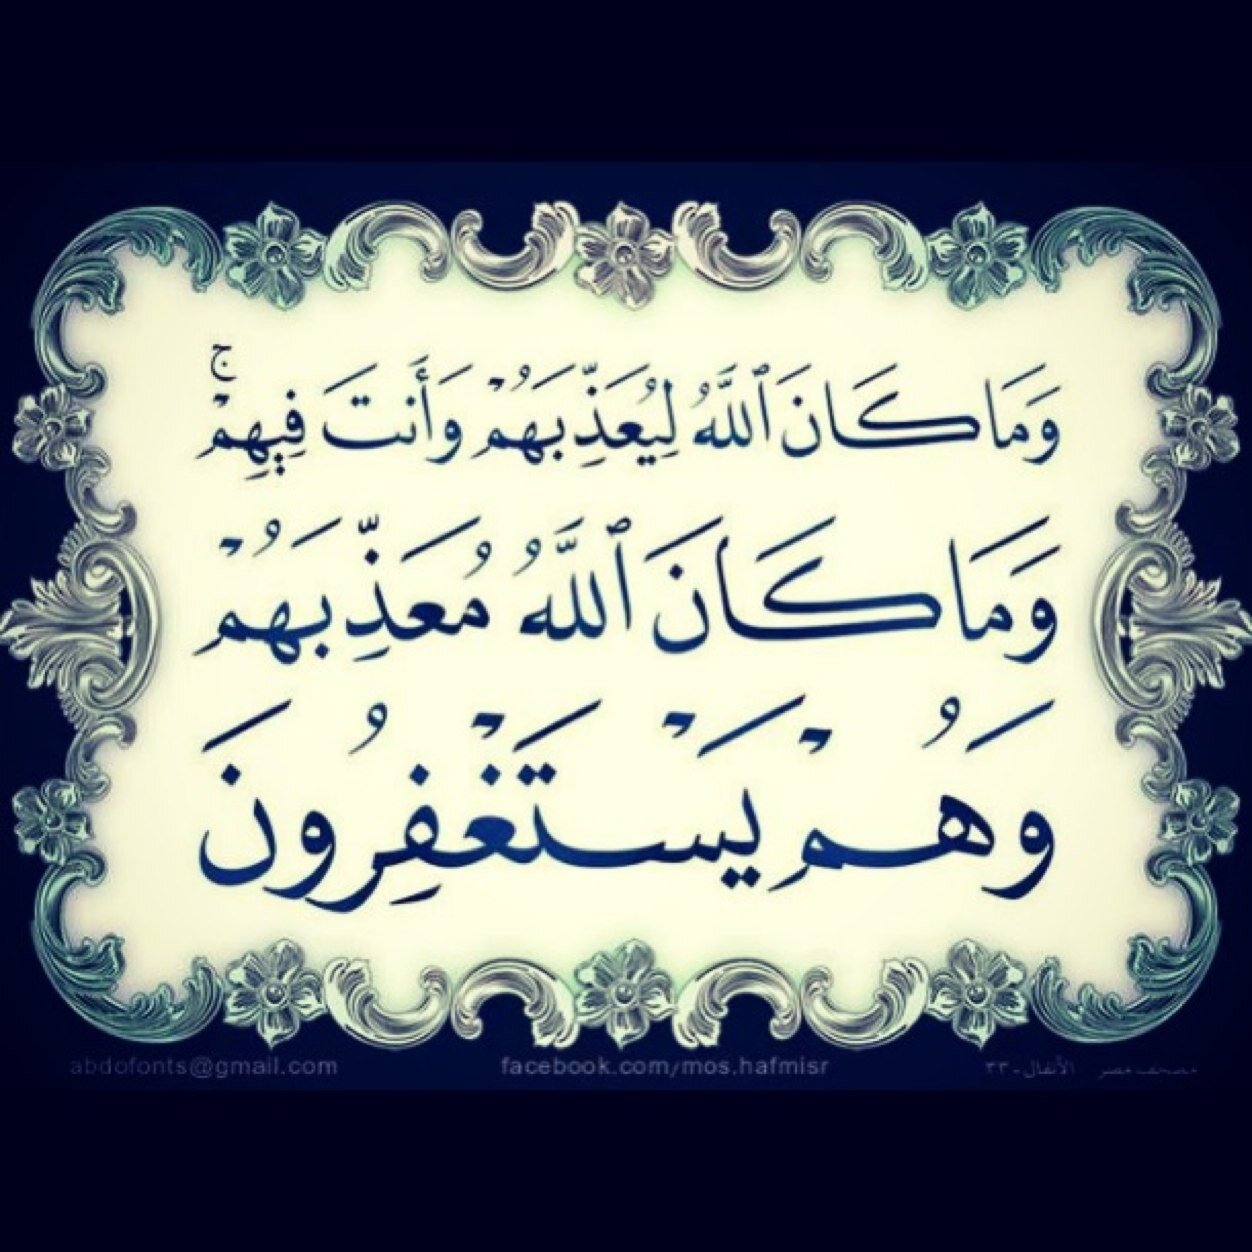 وَمَا كَانَ ٱللَّهُ لِيُعَذِّبَهُمْ وَأَنتَ فِيهِمْۚ
وَمَا كَانَ ٱللَّهُ مُعَذِّبَهُمْ
وَهُمْ يَسْتَغْفِرُونَ
abdofonts@gmail.com facebook.com/mos.hafmisr مصحف مصر الأنفال - ٣٣